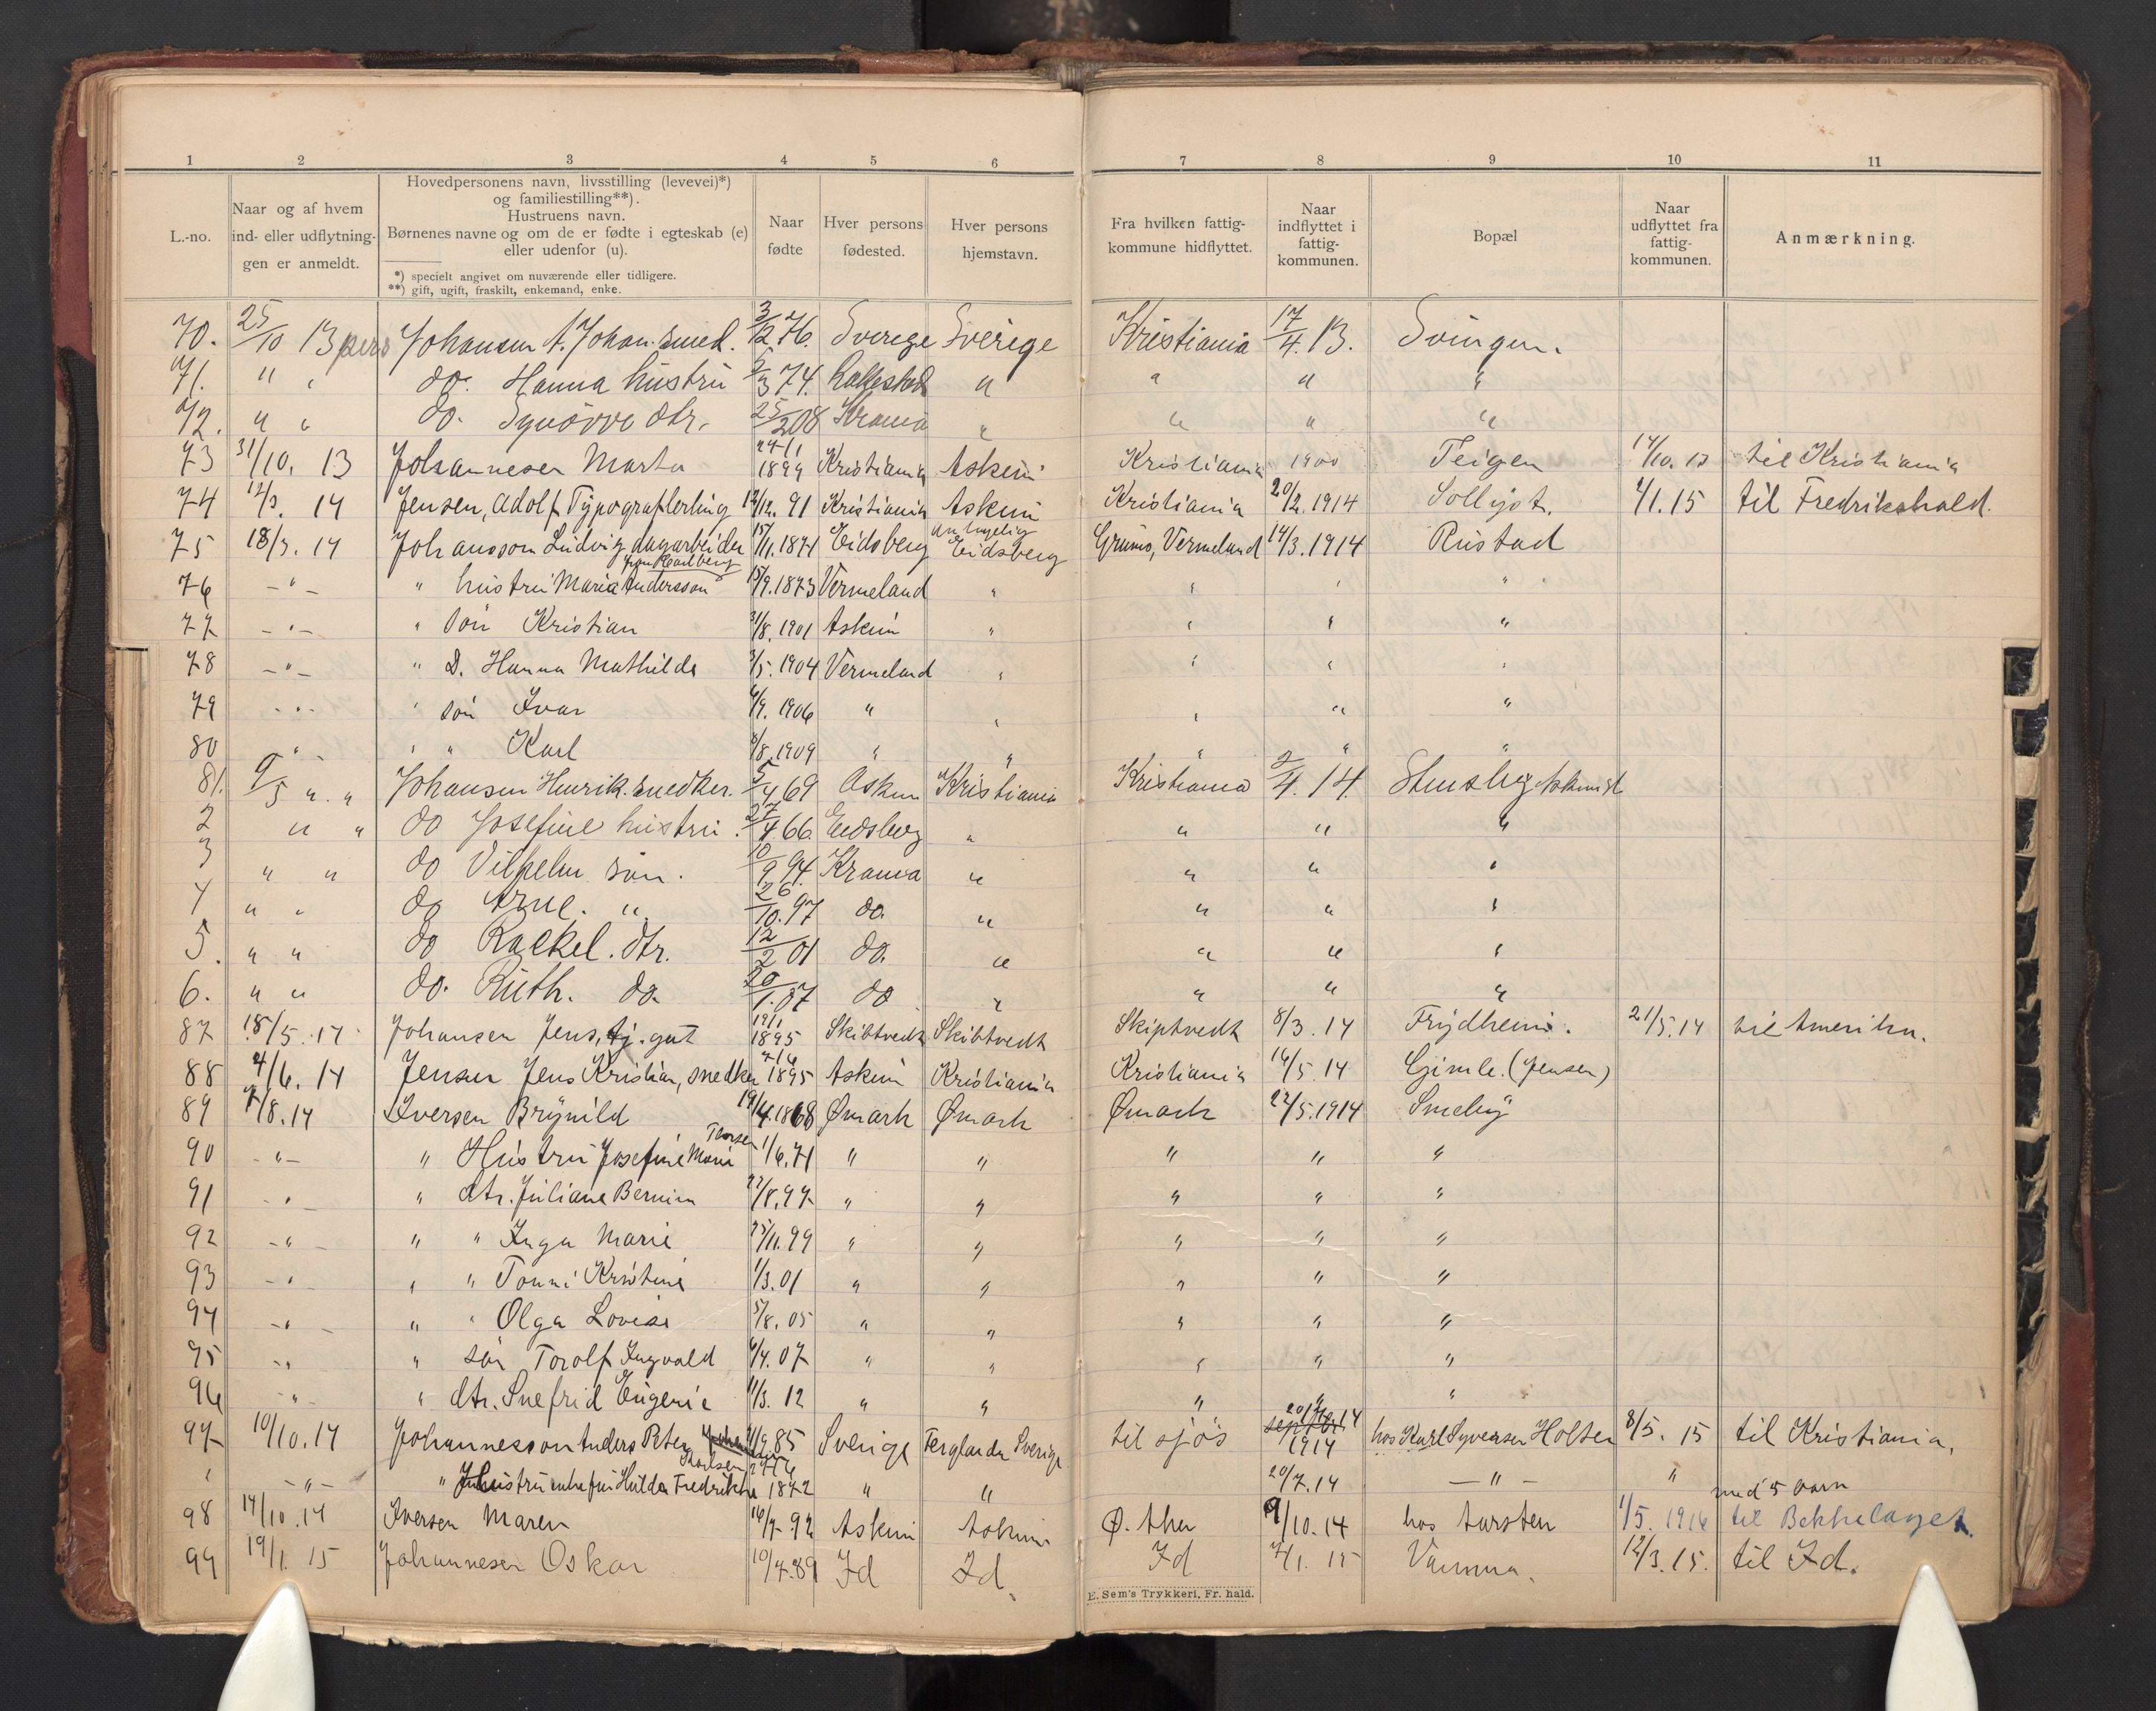 1 2 3 4 5 6 7 8 9 10 11
L.-no.
Naar og af hvem
ind- eller udflytnin-
gen er anmeldt.
Hovedpersonens navn, livsstilling (levevei)*)
og familiestilling**).
Hustruens navn.
Børnenes navne og om de er fødte i egteskab (e)
eller udenfor (u).
*) specielt angivet om nuværende eller tidligere.
**) gift, ugift, fraskilt, enkemand, enke.
Naar
fødte
Hver persons
fødested.
Hver persons
hjemstavn.
Fra hvilken fattig-
kommune hidflyttet.
Naar
indflyttet i
fattig-
kommunen.
Bopæl
Naar
udflyttet fra
fattig-
kommunen.
Anmærkning.
70. 25/10 13 Johansen A. Johan. smed. 3/12 76. Sverige Sverige Kristiania 17/4. 13. Svingen.
71. " " do. Hanna hustru 3 74. Rakkestad " " " "
72. " " do. Synövve dtr. 25/2 08 Krania " " " "
73 31/10. 13 Johannesen Marta 24/1 1899 Kristiania Askim Kristiania 1900 Teigen /10. 13 til Kristiania
74 12/3. 14 Jensen, Adolf Typograflerling /12. 91 Kristiania Askim Kristiania 20/2. 1914 Sollyst. 1/1. 15 til Fredrikshald.
75 18/3. 14 Johansson Ludvig dagarbeider 15/11. 1871 Eidsberg Eidsberg Grums, Vermeland 14/3. 1914 Rustad
76 - " - " hustru Maria Andersson 15/9. 1873 Vermeland " " " "
77 - " - " sön Kristian 31/8. 1901 Askim " " " "
78 - " - " D. Hanna Mathilde 3/5. 1904 Vermeland " " " "
79 - " - " sön Ivar /9. 1906 " " " " "
80 " " " Karl /8. 1909 " " " " "
81. 9/5 " " Johansen Henrik. snedker. 5/4 69 Askim Kristiania Kristiania 2/4. 14. Stensby
2 " " do Josefine hustru. 27/4. 66. Eidsberg " " " "
3 " " do Vilhelm sön. 10/9 94. Krania " " " "
4 " " do Arne. " 26/10. 97 do. " " " "
5. " " do Rackel. dtr. 12/2 01 do. " " " "
6. " " do. Ruth. do. 20/1. 07 do " " " "
87 18/5. 14 Johansen Jens, tj. gut 19/1 1895 Skibtvedt Skibtvedt Skiptvedt 8/3. 14 Frydheim. 21/5. 14 til Amerika.
88 4/6. 14 Jensen Jens Kristian, snedker 1895 Askim Kristiania Kristiania 16/5. 14 Gimle. (Jensen)
89 7/8. 14 Iversen Brynild 19/4. 1868 Ømark Ømark Ømark 22/5. 1914 Smeby
Thorsen
90 - " - " Hustru Josefine Marie 1/6. 71 " " " " "
91 - " - " dtr. Juliane 22/8. 97 " " " " "
92 - " - " " Inga Marie 25/11. 99 " " " " "
93 - " - " " Tonni Kristine 1/3. 01 " " " " "
94 - " - " " Olga Lovise 5/8. 05 " " " " "
95 - " " sön Torolf Ingvald /4. 07 " " " " "
96 - " - " dtr. Snefrid Eugenie /3. 12 " " " " "
97 10/10. 14 Johannesson Anders Peter /9. 85 Sverige Sverige til sjös 20/7 14 1914 hos Karl Syversen Holter 8/5. 15 til Kristiania.
" - " - " Hustru Hulda Fredrikke 1872 " " 20/7. 14 - " - "
98 14/10. 14 Iversen Maren 16/7. 92 Askim Askim Ø. 9/10. 14 hos Karsten 1/5. 1916 med 5 barn til Bekkelaget.
99 19/1. 15 Johannesen Oskar 10/7. 89 Id Id. Id 7/1. 15 Vamma. 12/3. 15. til Id.
E. Sem's Trykkeri, Fr. hald.
K
L